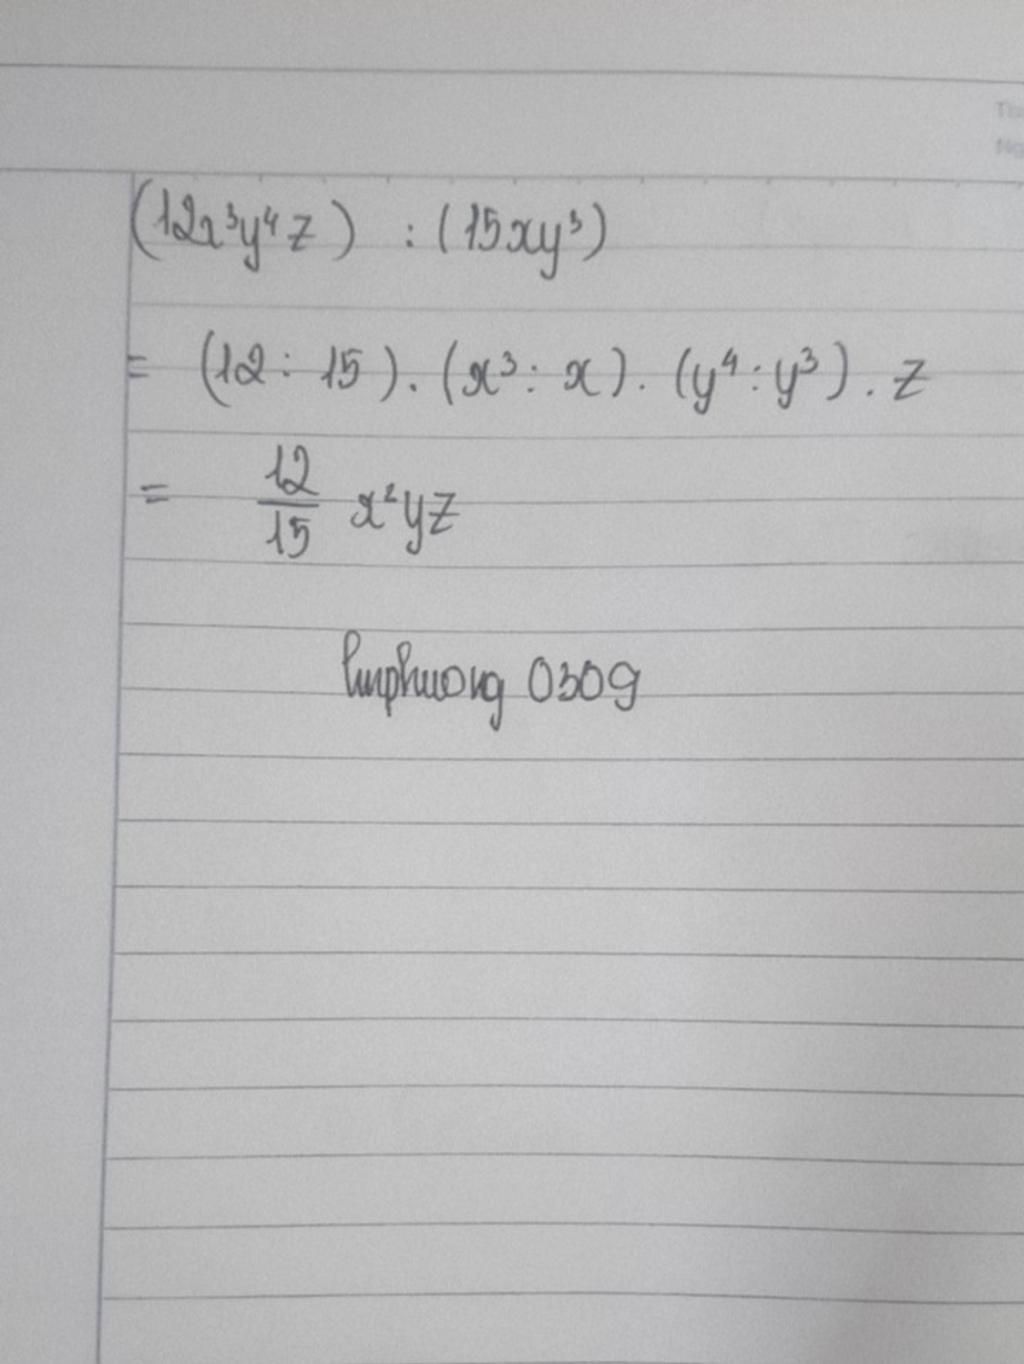 (12x³y⁴z) : (15xy³)
= (12 : 15) . (x³ : x) . (y⁴ : y³) . z
= 12/15 x²yz
linhphuong 0309